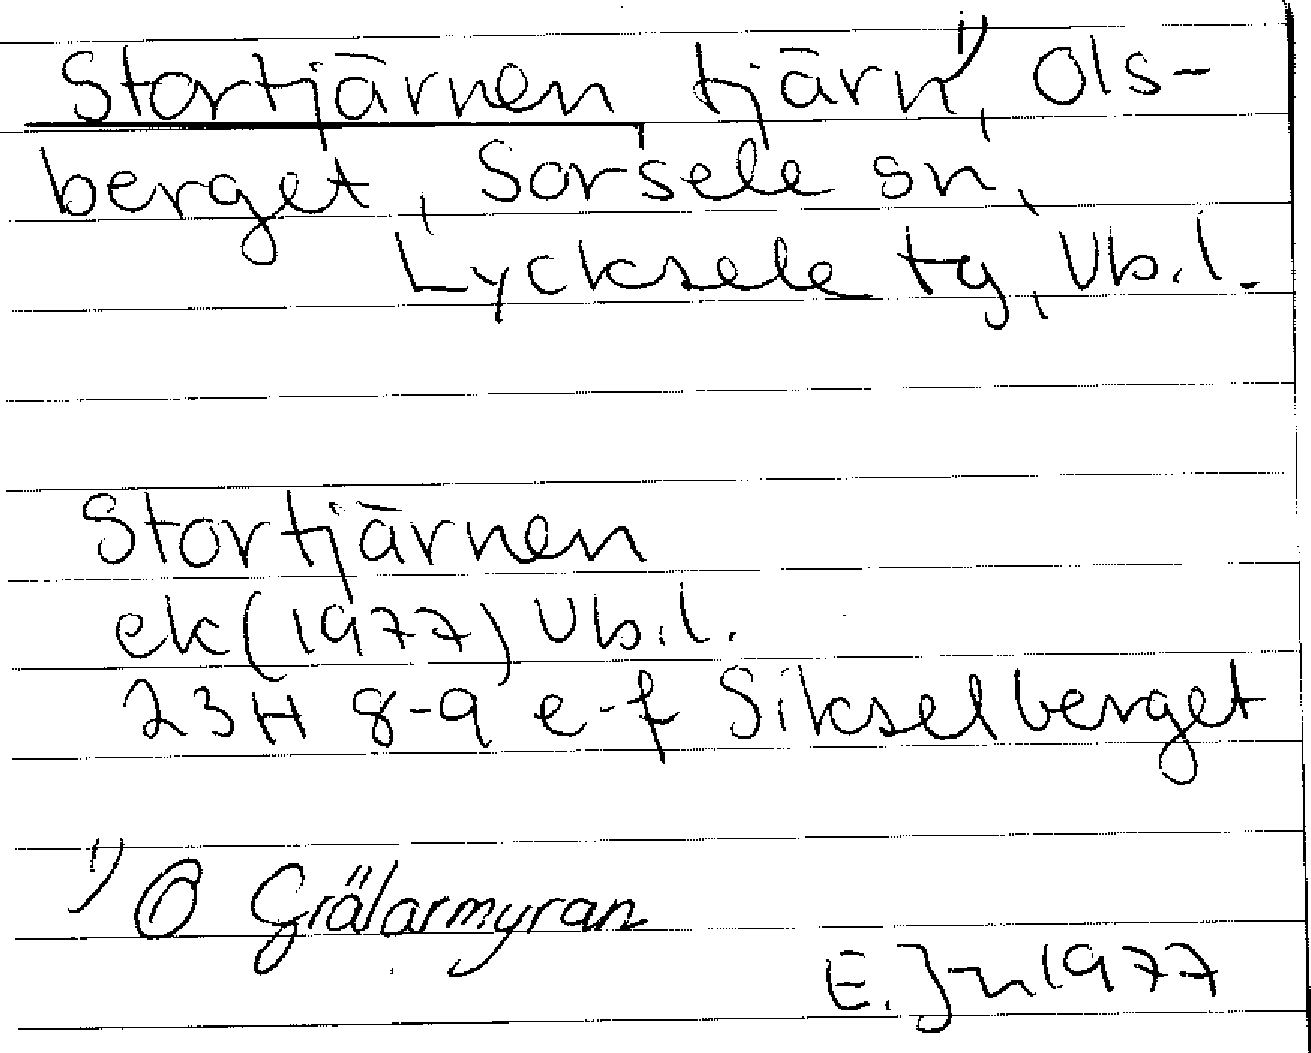 Stortjärnen tjärn¹⁾, Ols-
berget, Sorsele sn,
Lycksele tg, Vb.l.
Stortjärnen
ek (1977) Vb.l.
23H 8-9 e-f Sikselberget
¹⁾ Grälarmyran
E. Jn 1977